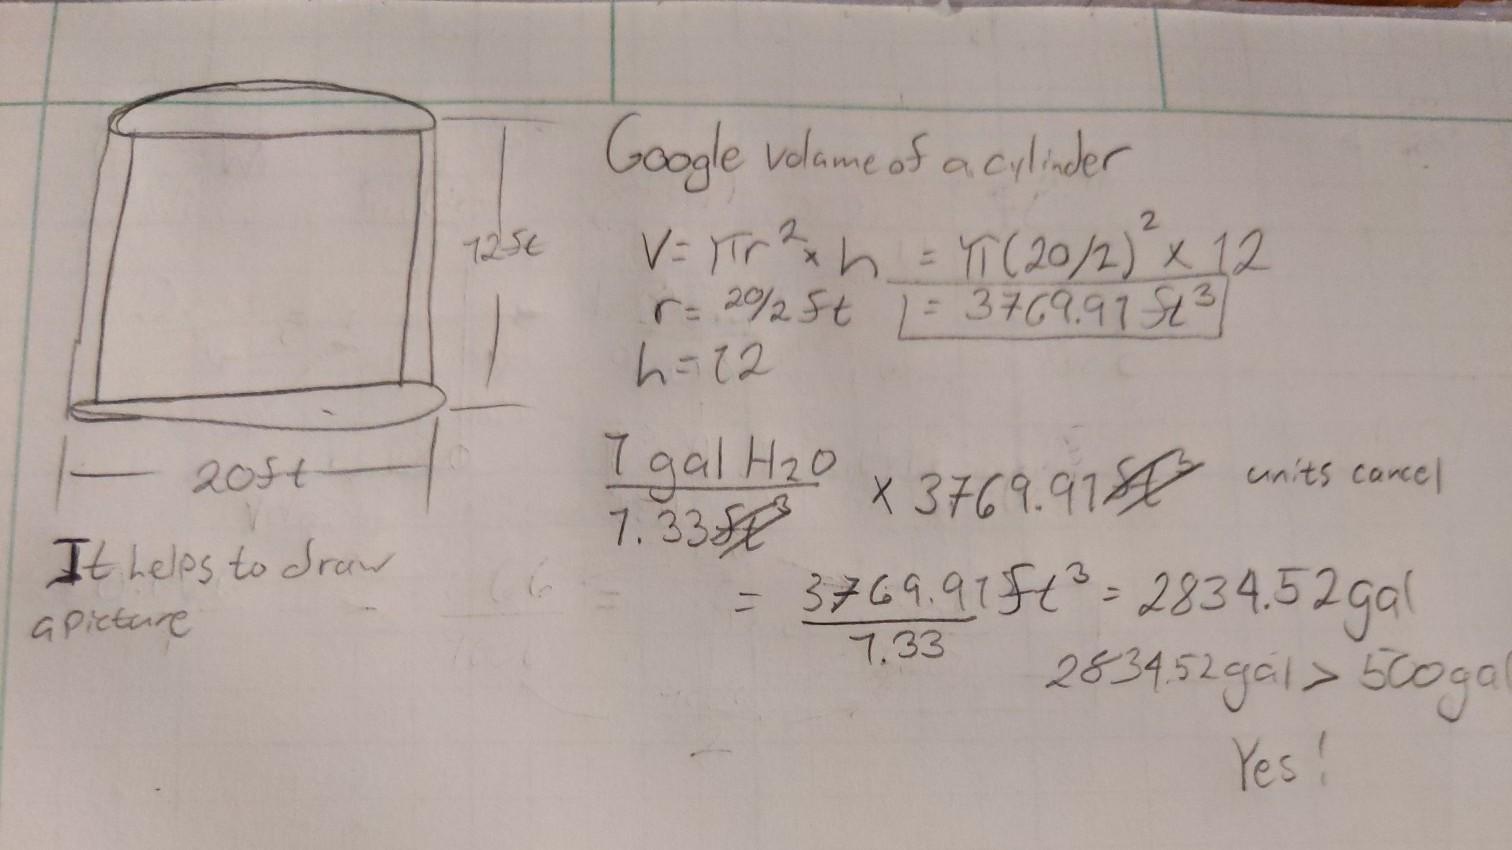 12ft
20ft
It helps to draw
a picture
Google volume of a cylinder
V = πr² × h = π(20/2)² × 12
r = 20/2 ft = 3769.91 ft³
h = 12
1 gal H₂O
1.33 ft³
× 3769.91 ft³ units cancel
= 3769.91 ft³ = 2834.52 gal
1.33
2834.52 gal > 500 gal
Yes!